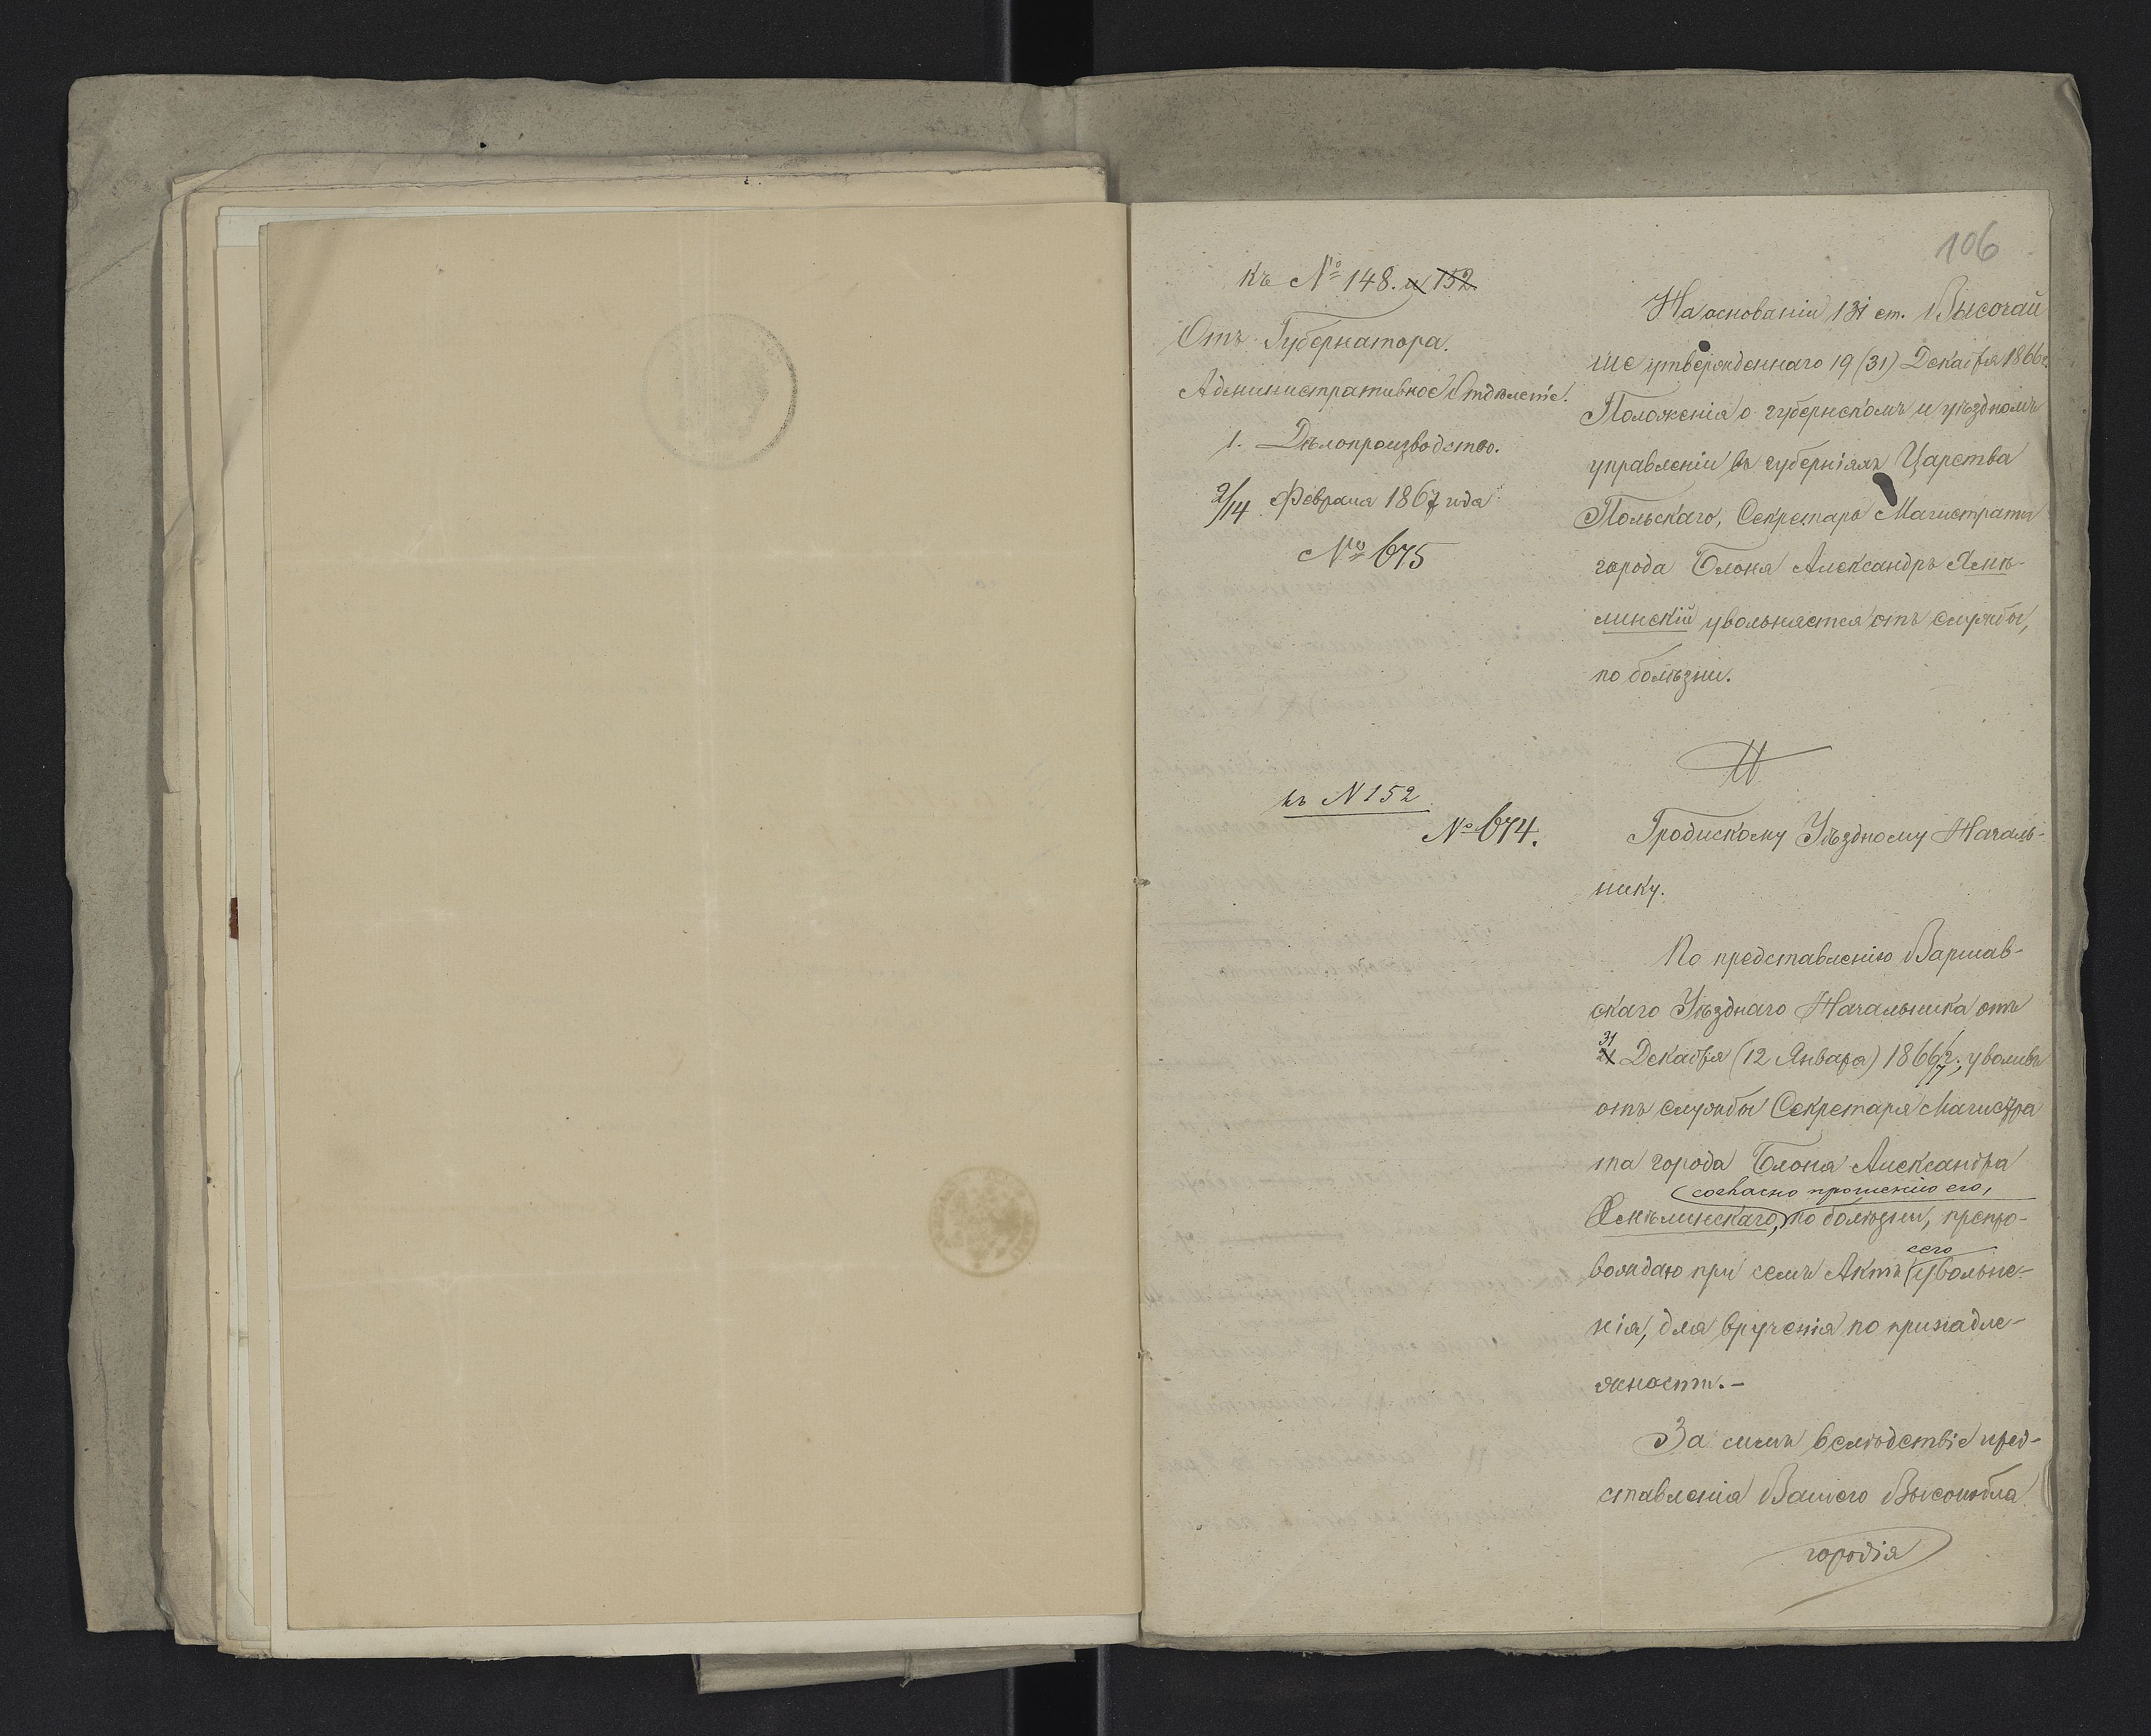 106
къ № 148. и 152.
Отъ Губернатора.
Административное Отдѣленіе.
1. Дѣлопроизводство.
2/14 Февраля 1867 года
№ 675
На основаніи 131 ст. Высочай
ше утвержденнаго 19 (31) Декабря 1866 г.
Положенія о губернскомъ и уѣздномъ
управленіи въ губерніяхъ Царства
Польскаго, Секретарь Магистрата
города Блоня Александръ
линскій увольняется отъ службы,
по болѣзни.
къ N 152
№ 674.
Гродискому Уѣздному Началь-
нику.
По представленію Варшав-
скаго Уѣзднаго Начальника отъ
31 Декабря (12 Января) 1866/7 г., уволивъ
отъ службы Секретаря Магистра
та города Блоня Александра
согласно прошенію его,
по болѣзни, препро-
вождаю при семъ Актъ сего увольне-
нія, для врученія по принадле-
жности. -
За симъ вслѣдствіе пред-
ставленія Вашего Высокобла
городія